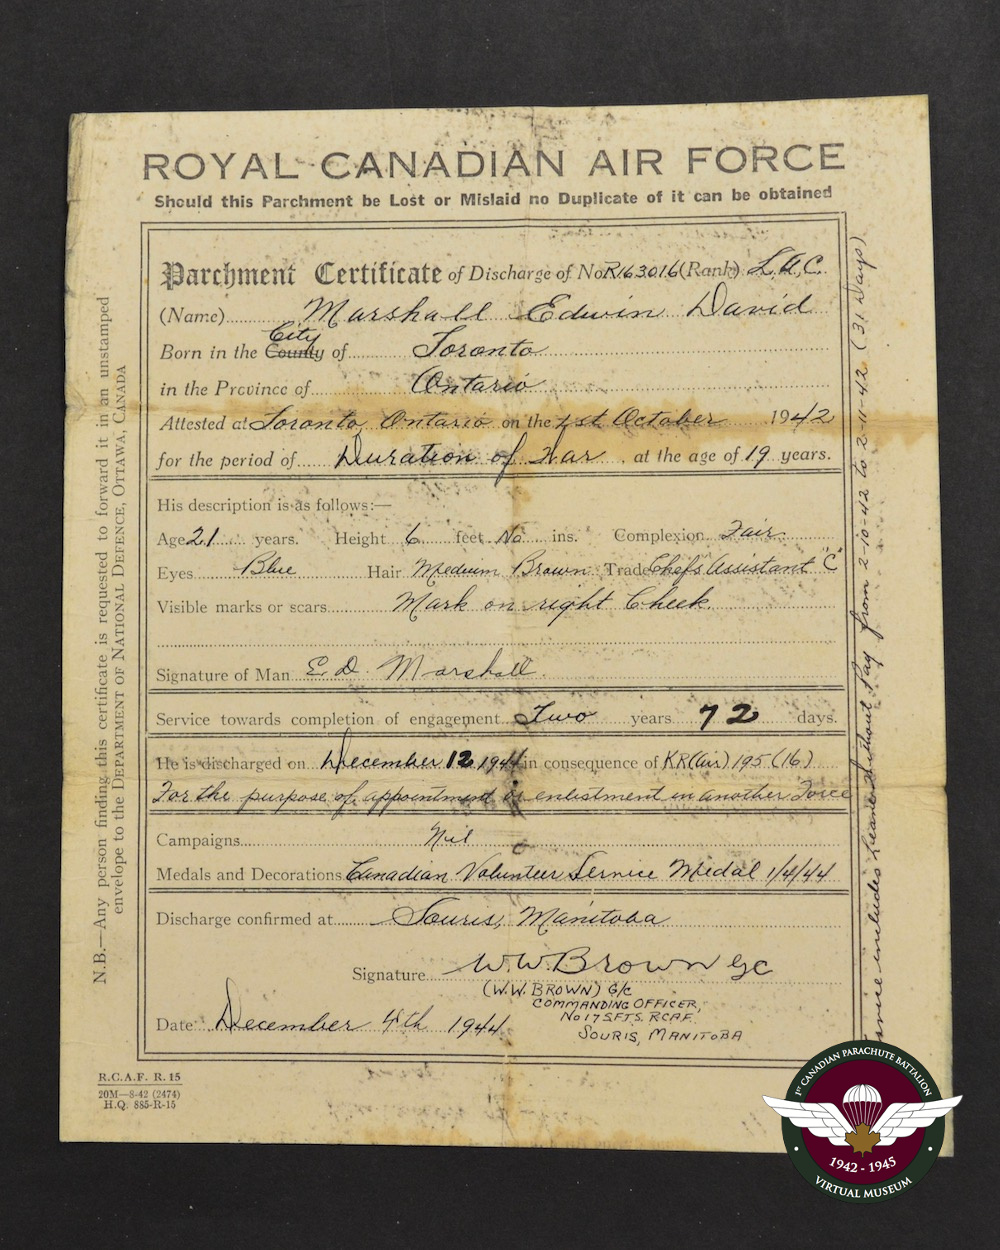 ROYAL CANADIAN AIR FORCE
Should this Parchment be Lost or Mislaid no Duplicate of it can be obtained
Parchment Certificate of Discharge of No R163016 (Rank) L.A.C.
(Name) Marshall Edwin David
City
Born in the County of Toronto
in the Province of Ontario
Attested at Toronto, Ontario on the 1st October 1942
for the period of Duration of War, at the age of 19 years.
His description is as follows:—
Age 21 years. Height 6 feet No ins. Complexion Fair.
Eyes Blue Hair Medium Brown Trade Chefs Assistant "C"
Visible marks or scars Mark on right Cheek.
Signature of Man E. D. Marshall.
Service towards completion of engagement Two years 72 days.
He is discharged on December 12 1944 in consequence of KR(Air) 195 (16)
For the purpose of appointment or enlistment in another Force
Campaigns Nil
Medals and Decorations Canadian Volunteer Service Medal 1/4/44
Discharge confirmed at Souris, Manitoba
Signature W.W. Brown G/C
(W.W. BROWN) G/C
COMMANDING OFFICER,
No 17 S.F.T.S. R.C.A.F.
SOURIS, MANITOBA
Date December 4th 1944
R.C.A.F. R. 15
20M—8-42 (2474)
H.Q. 885-R-15
N.B.—Any person finding this certificate is requested to forward it in an unstamped
envelope to the DEPARTMENT OF NATIONAL DEFENCE, OTTAWA, CANADA
includes Leave Without Pay from 2-10-42 to 2-11-42 (31 Days)
1ST CANADIAN PARACHUTE BATTALION
1942 - 1945
VIRTUAL MUSEUM